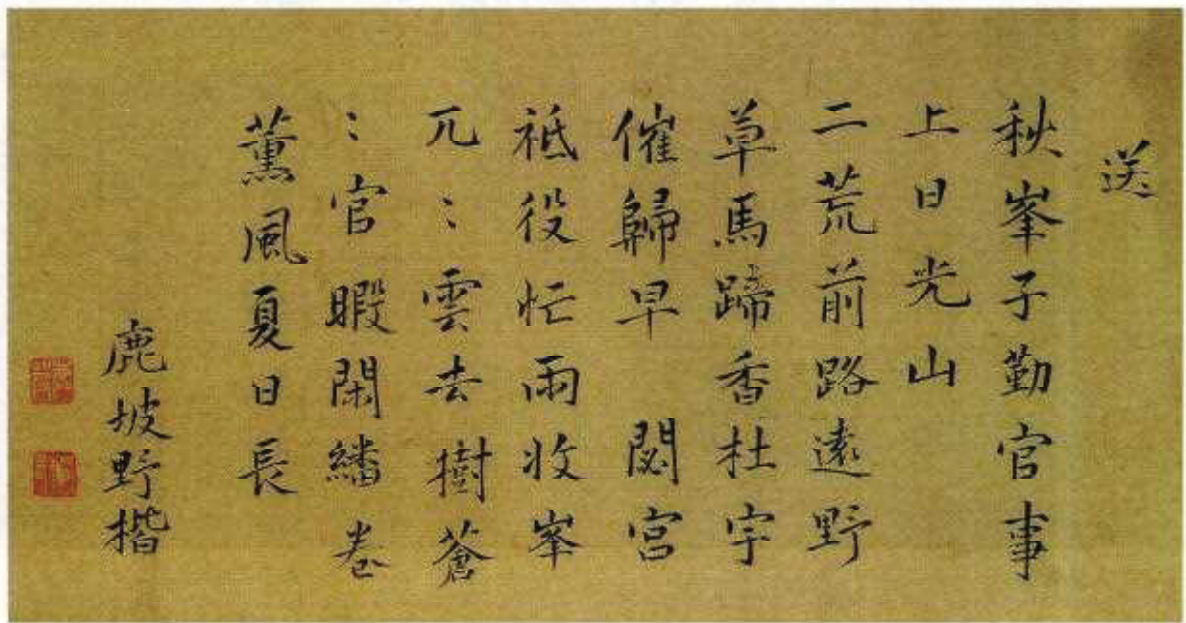 送
秋峯子勤官事
上日光山
二荒前路遠野
草馬蹄香杜宇
催歸早 閟宮
祗役忙雨收峯
兀〻雲去樹蒼
〻官暇閑繙卷
薫風夏日長
鹿坡野楷